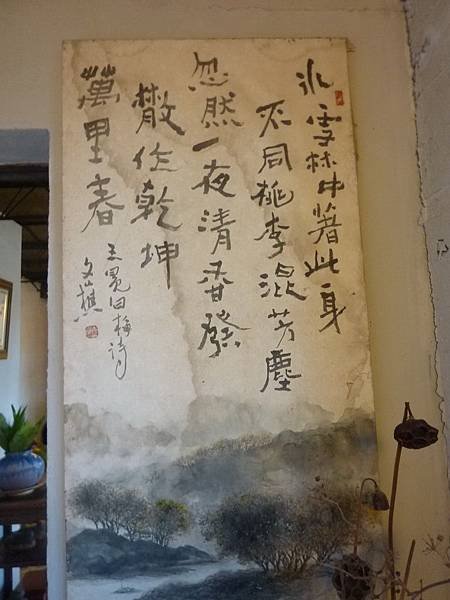 冰雪林中著此身
不同桃李混芳塵
忽然一夜清香發
散作乾坤
萬里春
王冕白梅詩